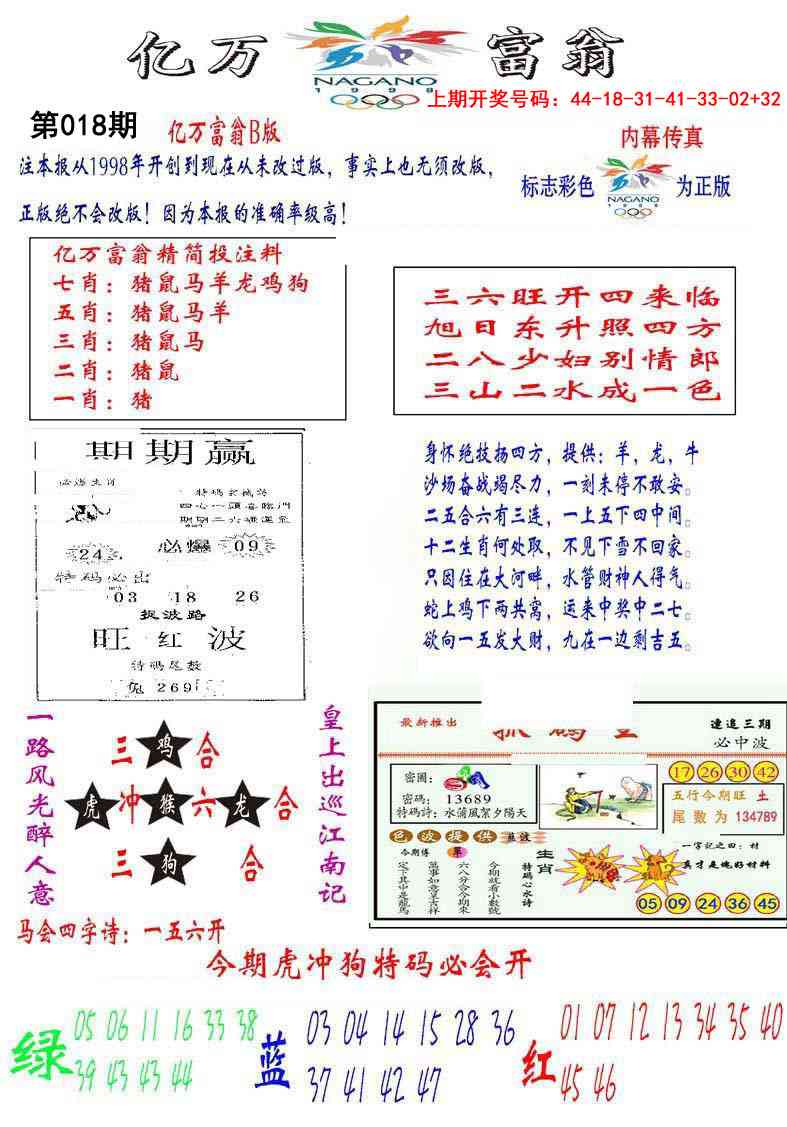 亿万富翁
NAGANO
1998
上期开奖号码：44-18-31-41-33-02+32
第018期
亿万富翁B版
内幕传真
注本报从1998年开创到现在从未改过版，事实上也无须改版，
正版绝不会改版！因为本报的准确率级高！
标志彩色
NAGANO
1998
为正版
亿万富翁精简投注料
七肖：猪鼠马羊龙鸡狗
五肖：猪鼠马羊
三肖：猪鼠马
二肖：猪鼠
一肖：猪
三六旺开四来临
旭日东升照四方
二八少妇别情郎
三山二水成一色
期期赢
24
必爆
09
特码必出
03 18 26
捉波路
旺红波
特码尾数
兔269
身怀绝技扬四方，提供：羊，龙，牛
沙场奋战竭尽力，一刻未停不敢安。
二五合六有三连，一上五下四中间。
十二生肖何处取，不见下雪不回家。
只因住在大河畔，水管财神人得气。
蛇上鸡下两共窝，运来中奖中二七。
欲向一五发大财，九在一边剩吉五。
一路风光醉人意
三鸡合
虎冲猴六龙合
三狗合
皇上出巡江南记
最新推出
连追三期
必中波
密圖：
密码：13689
特码詩：水蒲風絮夕陽天
17 26 30 42
五行今期旺 土
尾数为 134789
色波提供 蓝波
今期傳
單
今期就看小數號
六八分合今期來
萬事如意呈吉祥
定下其中是龍馬
生肖
特码心水诗
一字记之曰：材
真才是绝好材料
05 09 24 36 45
马会四字诗：一五六开
今期虎冲狗特码必会开
绿
05 06 11 16 33 38
39 43 43 44
蓝
03 04 14 15 28 36
37 41 42 47
红
01 07 12 13 34 35 40
45 46